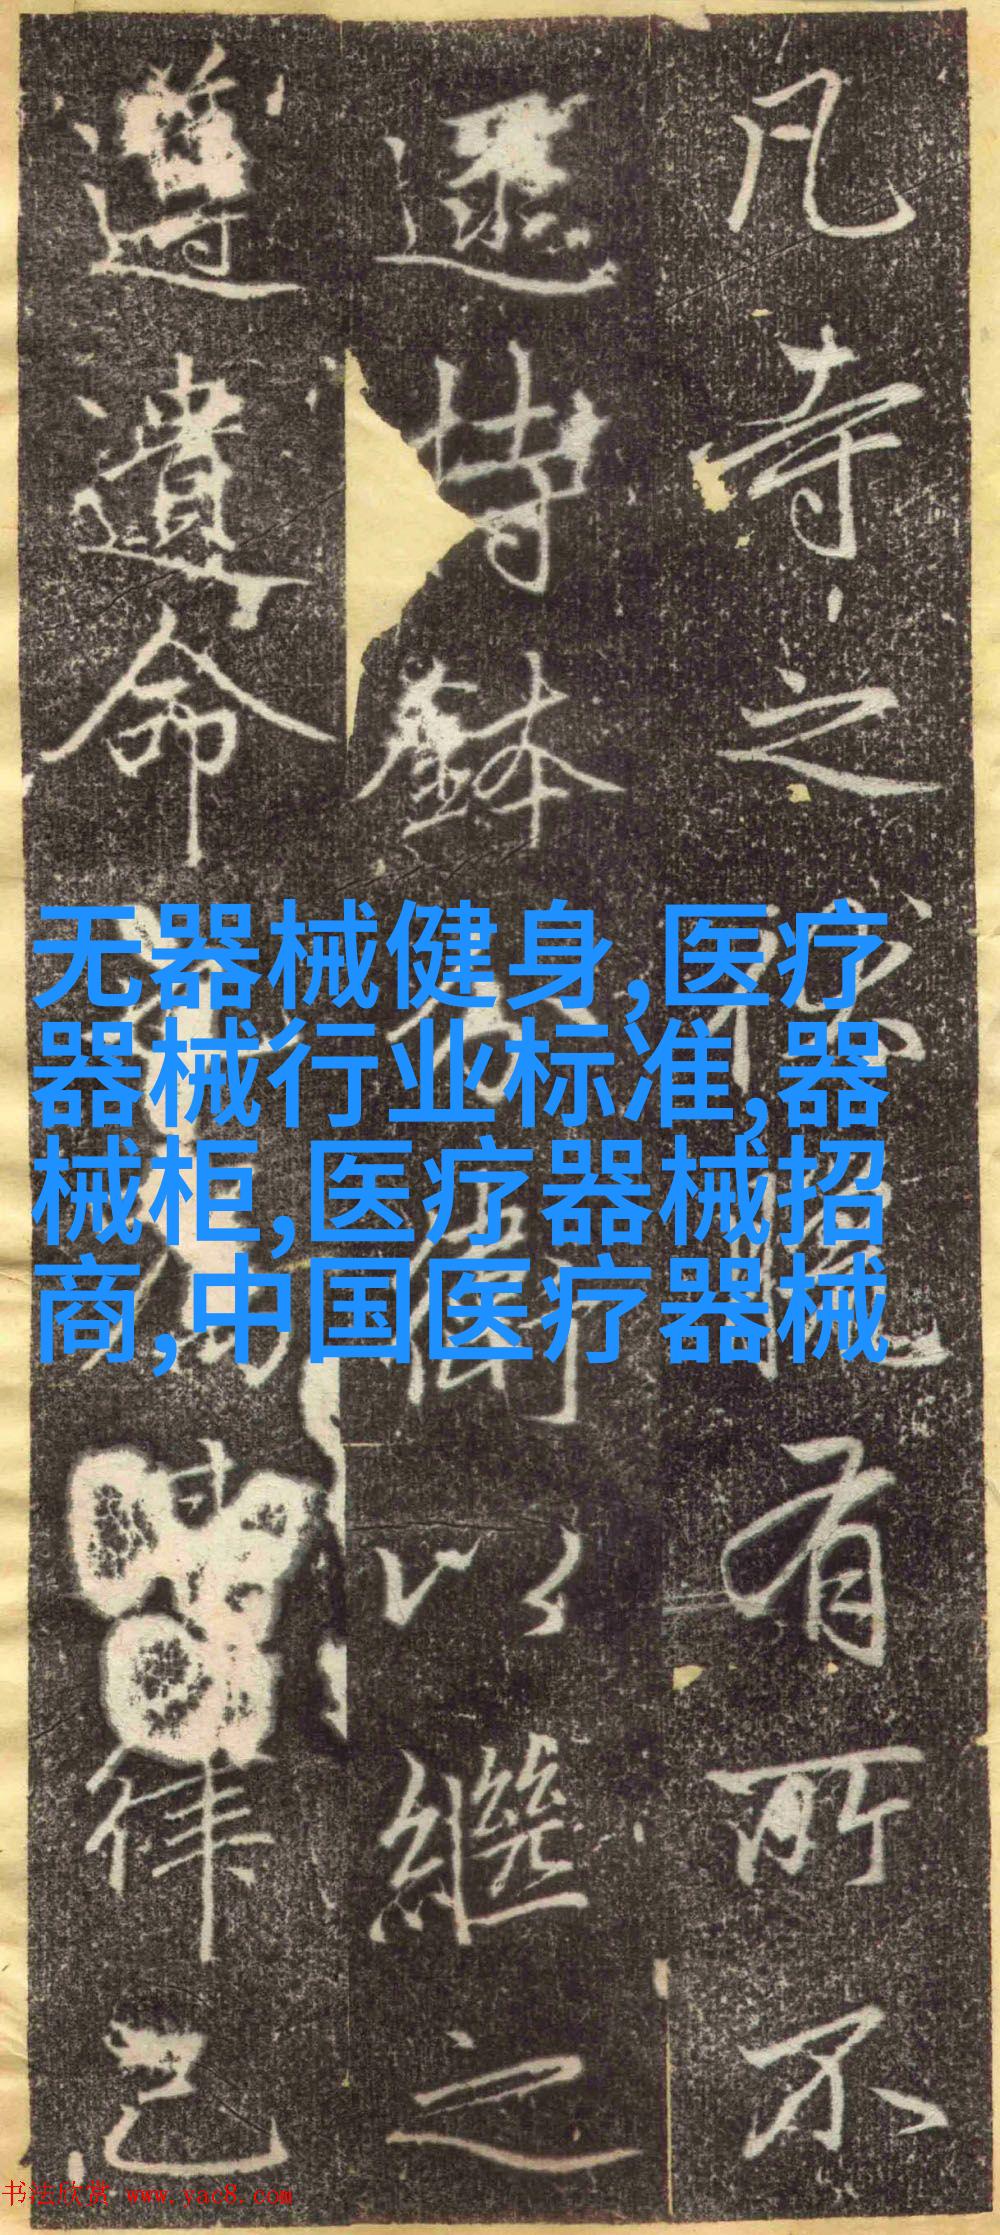 凡寺之有所不
持鉢以繼之
遵遺命律己
无器械健身,医疗
器械行业标准,器
械柜,医疗器械招
商,中国医疗器械
书法欣赏 www.yac8.com